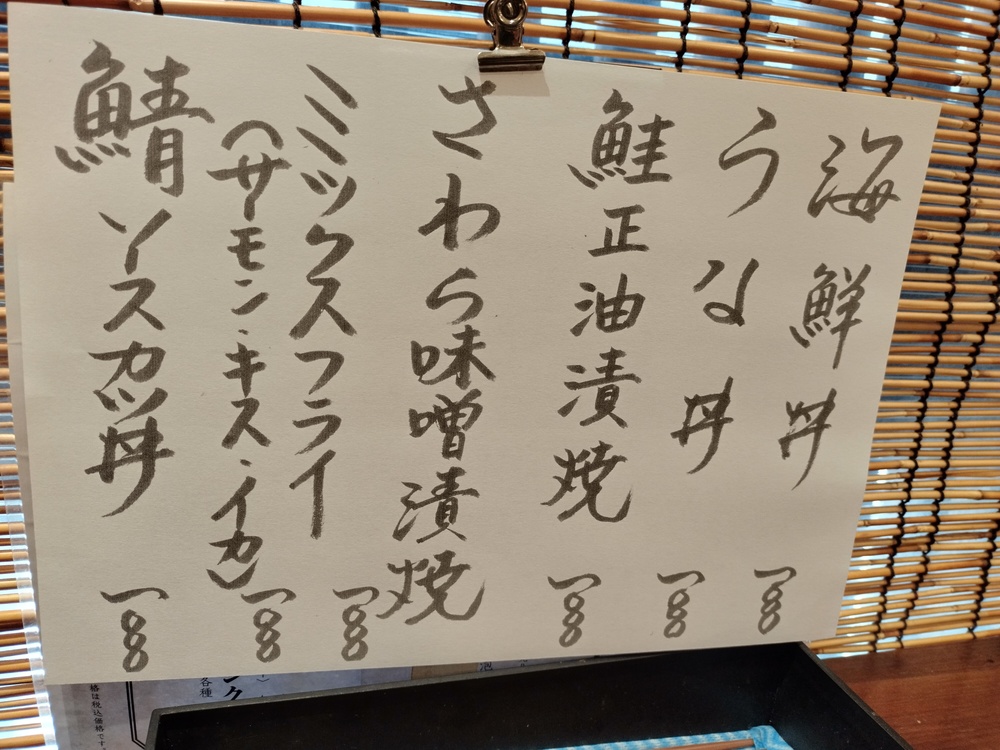 海鮮丼 一〇〇〇
うな丼 一〇〇〇
鮭正油漬焼 一〇〇〇
さわら味噌漬焼 一〇〇〇
ミックスフライ
(サーモン・キス・イカ) 一〇〇〇
鯖ソースカツ丼 一〇〇〇
泡
ンク
各種
格は税込価格です